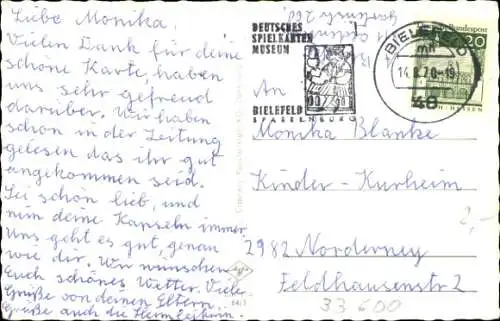 Liebe Monika,
Vielen Dank für deine
schöne Karte, haben
uns sehr gefreud
darüber. Wir haben
schon in der Zeitung
gelesen das ihr gut
angekommen seid.
Sei schön lieb, und
nim deine Kapseln immer.
Uns geht es gut, genau
wie dir. Wir wünschen
Euch schönes Wetter. Viele
Grüße von deinen Eltern.
Grüße auch die
DEUTSCHES
SPIELKARTEN
MUSEUM
BIELEFELD
SPARRENBURG
BIELEFELD
mh
14.8.70-19
48
Bundespost
20
HESSEN
An
Monika Blanke
Kinder-Kurheim
2,-
2982 Norderney
Feldhausenstr 2
33600